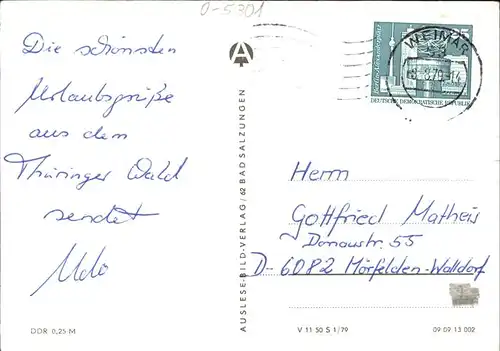 0-5301
Die schönsten
Urlaubsgrüße
aus dem
Thüringer Wald
sendet
Udo
DDR 0,25 M
A
AUSLESE-BILD-VERLAG/62 BAD SALZUNGEN
WEIMAR
53
.8.79-14
Berlin-Alexanderplatz
15
DEUTSCHE DEMOKRATISCHE REPUBLIK
Herrn
Gottfried Matheis
Donaustr. 55
D-6082 Mörfelden-Walldorf
V 11 50 S 1/79
09 09 13 002